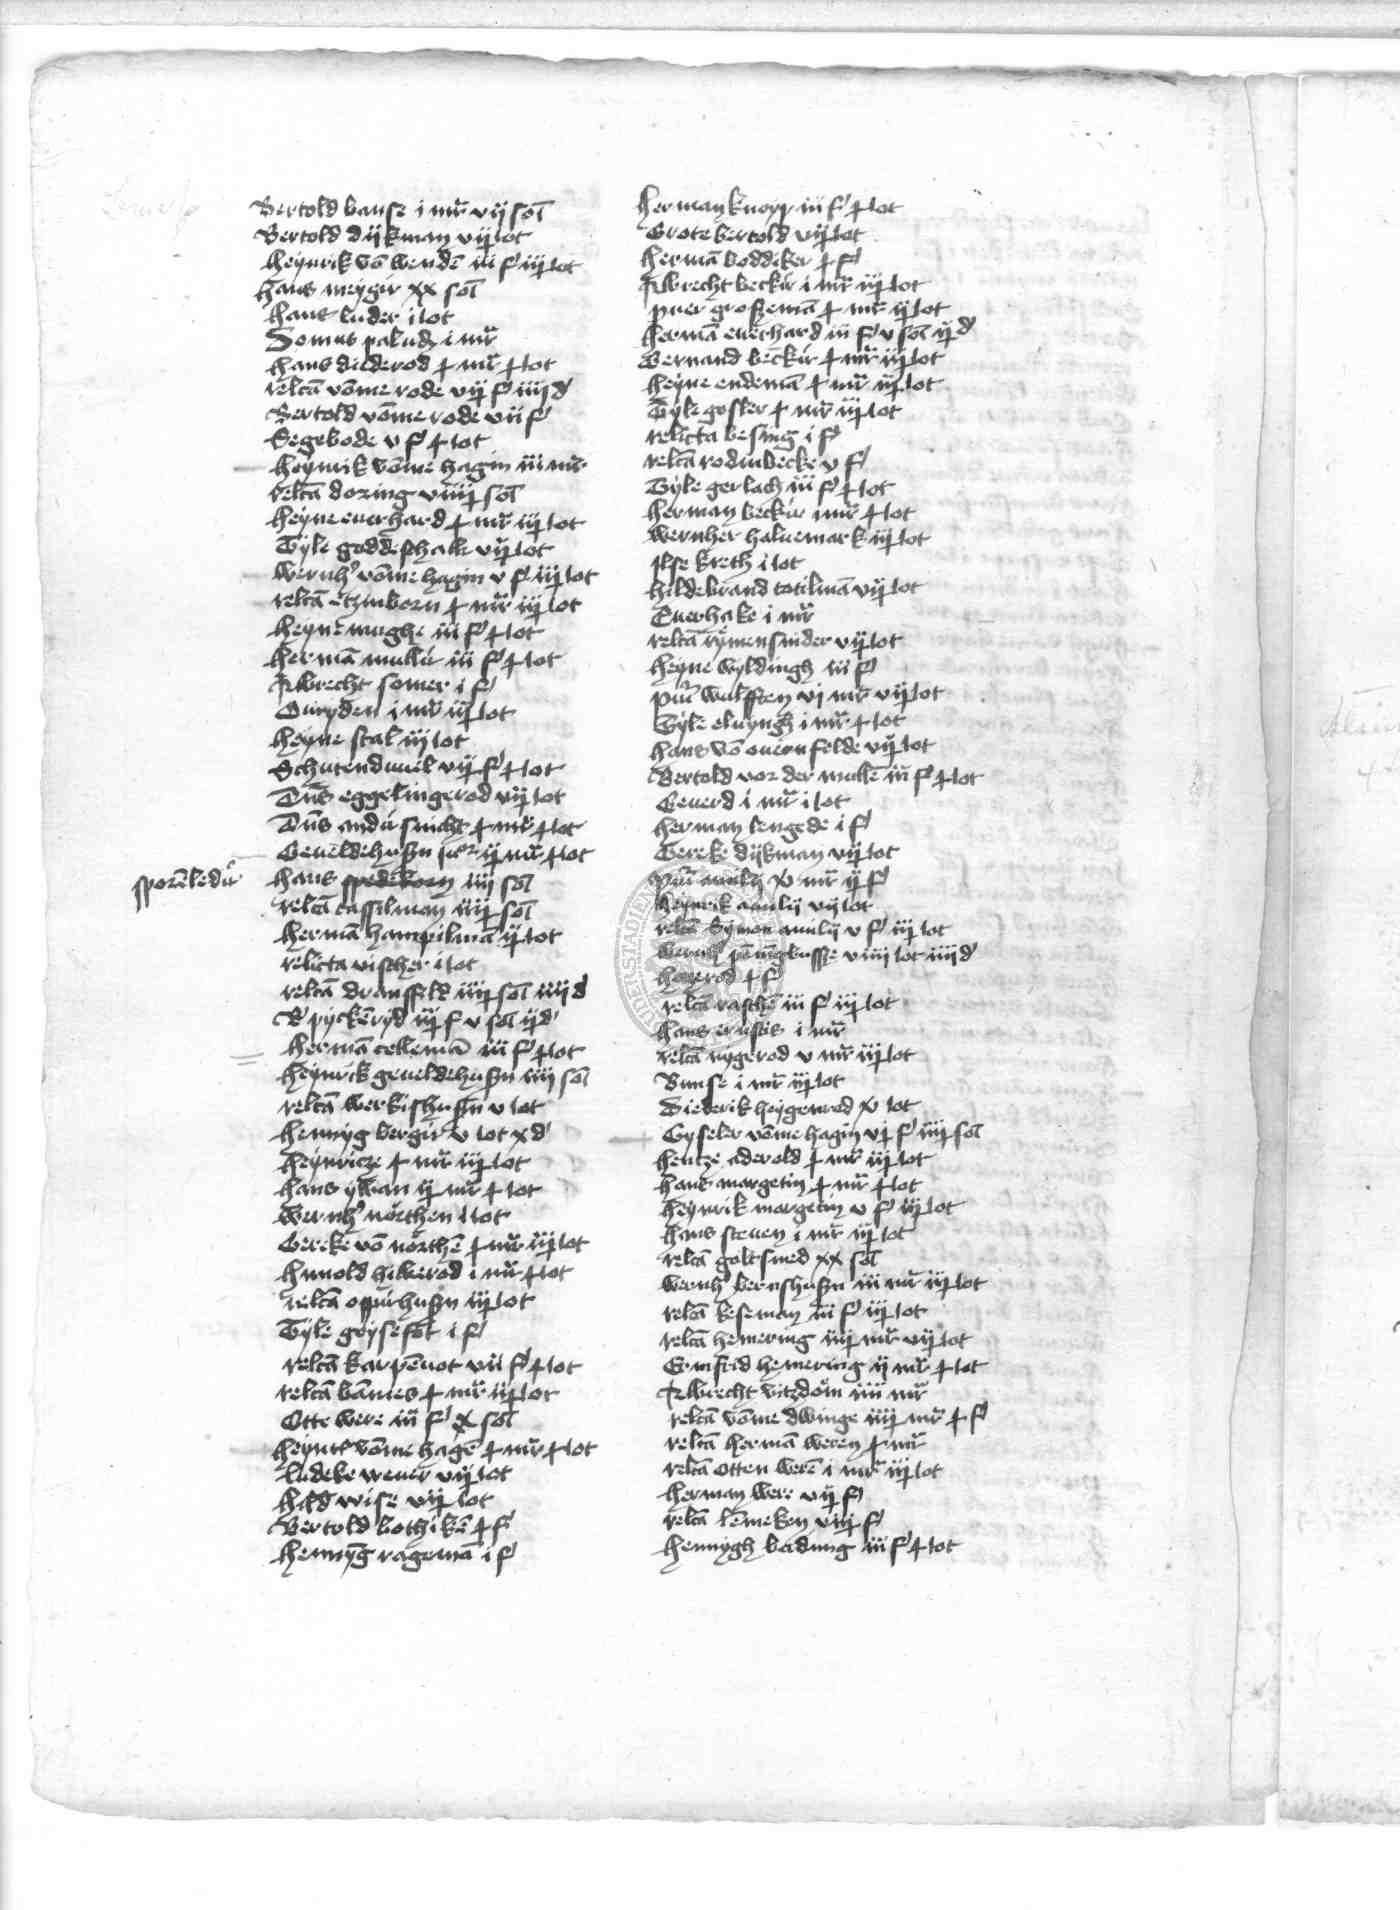 Bertold banse i mr vij sol
Bertold dijkman vij lot
heynrik vō wendē iii f iij lot
hans meyger xx sol
hans luder i lot
Domus palud i mr
hans dilderod mr lot
relcā vōme rode vij f iiij d
Bertold vōme rode vii f
Segebode v f lot
heynrik vōme hagin iii mr
relcā doring viiij sol
heyne euerhard mr iij lot
Tyle goddeschalk vij lot
wernh vōme hagin v f iij lot
relcā etzinborn mr iij lot
heyne mughe iii f lot
hermā mullir iii f lot
Albrecht somer i f
Guryden i mr iij lot
heyne stal iij lot
Schutenduuel vij f lot
Dns eggelingerod vij lot
Dns andir snicht mr lot
Geueldehusen ij mr lot
sporēledir
hans spedekorn iiij sol
relcā cassilman iiij sol
hermā hampilmā ij lot
relicta vischer i lot
relcā dransfeld iiij sol iiij d
B pyckēryd iij f v sol ij d
hermā tellemā iii f lot
heynrick geueldehusen iiij sol
relcā werkishusen v lot
hennyg bergir v lot x d
heynricze mr iij lot
hans ywan ij mr lot
wernh nörthen i lot
Gereke vō nörthē mr iij lot
hunold hilkerod i mr lot
relcā oppirhusen iij lot
Tyle geysefot i f
relcā karpēuot vii f lot
relcā bānies mr iij lot
Otte were iii f x sol
heynr vōme hagē mr lot
ludeke weuer vij lot
hild wise vij lot
Bertold bothikē f
hennyg ragemā i f
herman knorr iii f lot
Grote bertold vij lot
hermā boddiker f
Albrecht beckir i mr iij lot
puer grosemā mr ij lot
hermā euerhard iii f v sol ij d
Bernand beckir mr iij lot
heyne endemā mr ij lot
Tyle gosler mr iij lot
relicta besing i f
relcā rodinbecke v f
Tyle gerlach iii f lot
herman beckir i mr lot
wernher haluemark iij lot
Ilse kreth i lot
hildebrand totilmā vij lot
Euerhake i mr
relcā rymensnider vij lot
heyne wyldingh iii f
pui wulfften vi mr vij lot
Tyle eluyngh i mr lot
hans vō ouernfelde vij lot
Bertold vor der mullē iii f lot
Geuerd i mr i lot
herman lengede i f
Gereke dijkman vij lot
pui amilij xv mr ij f
heynrik amilij vij lot
relcā Symon amilij v f iij lot
wernh pēnigbusse viiij lot iiij d
haxrod f
relcā raschē iii f iij lot
hans ernstis i mr
relcā nygerod v mr iij lot
Bunse i mr iij lot
Diederik heygenrod xv lot
Gyseler vōme hagin vj f iiij sol
hentze aderold mr iij lot
hans margetin mr lot
heynrik margetin v f iij lot
hans steuen i mr iij lot
relcā goltsmed xx sol
wernh bernshusen iii mr iij lot
relcā keseman iii f iij lot
relcā hemering iiij mr vij lot
Ermfrid hemering ij mr lot
Albrecht vitzdom iiii mr
relcā vōme dwinge iiij mr f
relcā hermā weren mr
relcā otten werē i mr iij lot
herman were vij f
relcā lēmeken viij f
hennygh berdung iii f lot